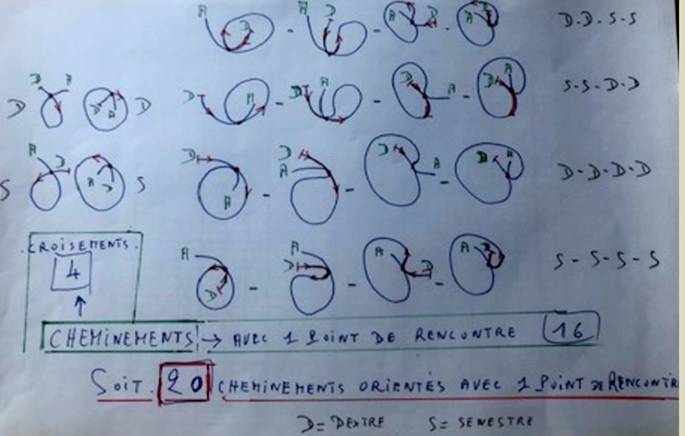 A D A D A D A D D-D-S-S
D A D
D A D D A D A D A D A S-S-D-D
A D
S A D S D A D A D A D A D-D-D-D
A D A D A D A D S-S-S-S
CROISEMENTS.
4
CHEMINEMENTS → AVEC 1 POINT DE RENCONTRE 16
SOIT. 20 CHEMINEMENTS ORIENTÉS AVEC 1 POINT DE RENCONTR
D = DEXTRE S = SENESTRE